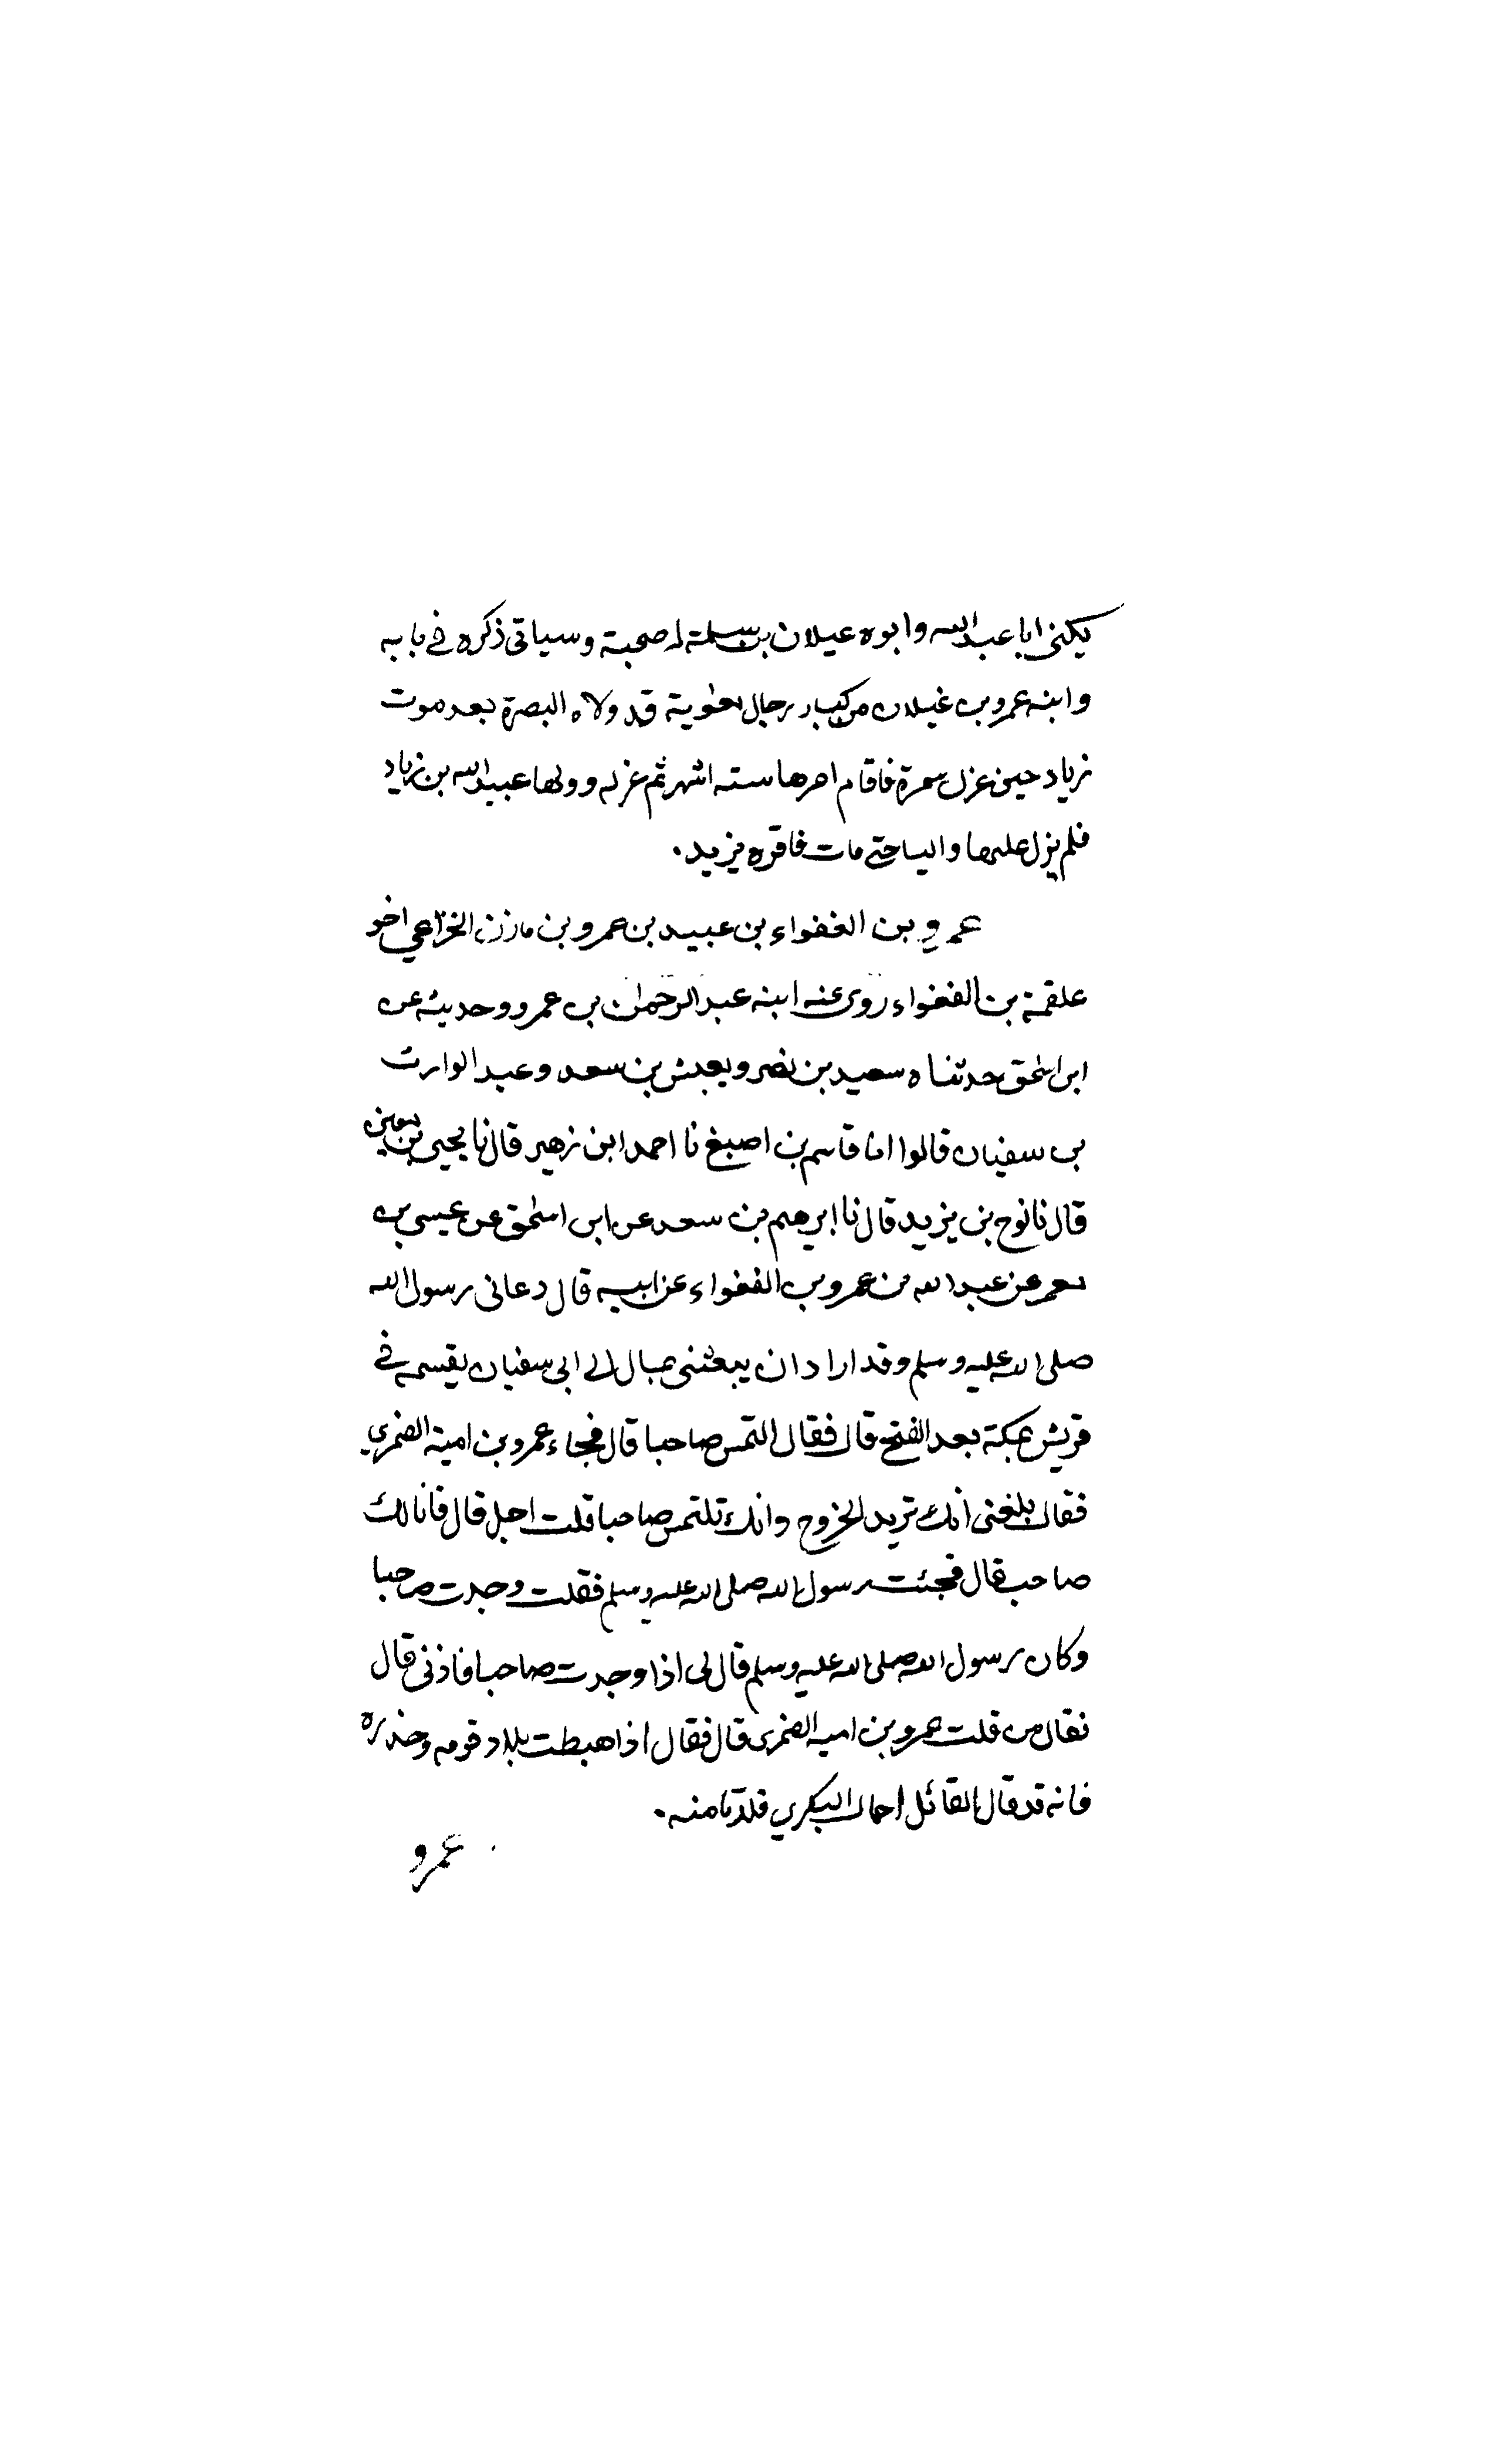 يكنى ابا عبد الله وابوه عيلان بن سلمة له صحبة وسياتى ذكره في بابه
وابنه عمرو بن غيلان من كبار رجال معوية قد ولاه البصرة بعد موت
زياد حين عزل سمرة فاقام امرها ستة اشهر ثم عزله وولها عبيد الله بن زياد
فلم يزل عليها واليا حتى مات فاقره يزيد.
عمرو بن الغفواء بن عبيد بن عمرو بن مازن الخزاعي اخو
علقمة بن الفغواء روى عنه ابنه عبد الرحمن بن عمرو وحديثه عن
ابن اسحق حدثناه سعيد بن نصر ويعيش بن سعد وعبد الوارث
بن سفيان قالوا انا قاسم بن اصبغ نا احمد ابن زهير قال نا يحيى بن معين
قال نا نوح بن يزيد قال نا ابرهيم بن سعد عن ابن اسحق عن عيسى بن
معمر عن عبد الله بن عمرو بن الفغواء عن ابيه قال دعانى رسول الله
صلى الله عليه وسلم وقد اراد ان يبعثنى بمال الى ابى سفيان يقسمه في
قريش بمكة بعد الفتح قال فقال التمس صاحبا قال فجاء عمرو بن امية الضمري
فقال بلغنى انك تريد الخروج وانك تلتمس صاحبا قلت اجل قال فانا لك
صاحب قال فجئت رسول الله صلى الله عليه وسلم فقلت وجدت صاحبا
وكان رسول الله صلى الله عليه وسلم قال لى اذا وجدت صاحبا فاذنى قال
فقال من قلت عمرو بن امية الضمرى قال فقال اذا هبطت بلاد قومه فحذره
فانه قد قال القائل اخاك البكري فلا تامنه.
عمرو